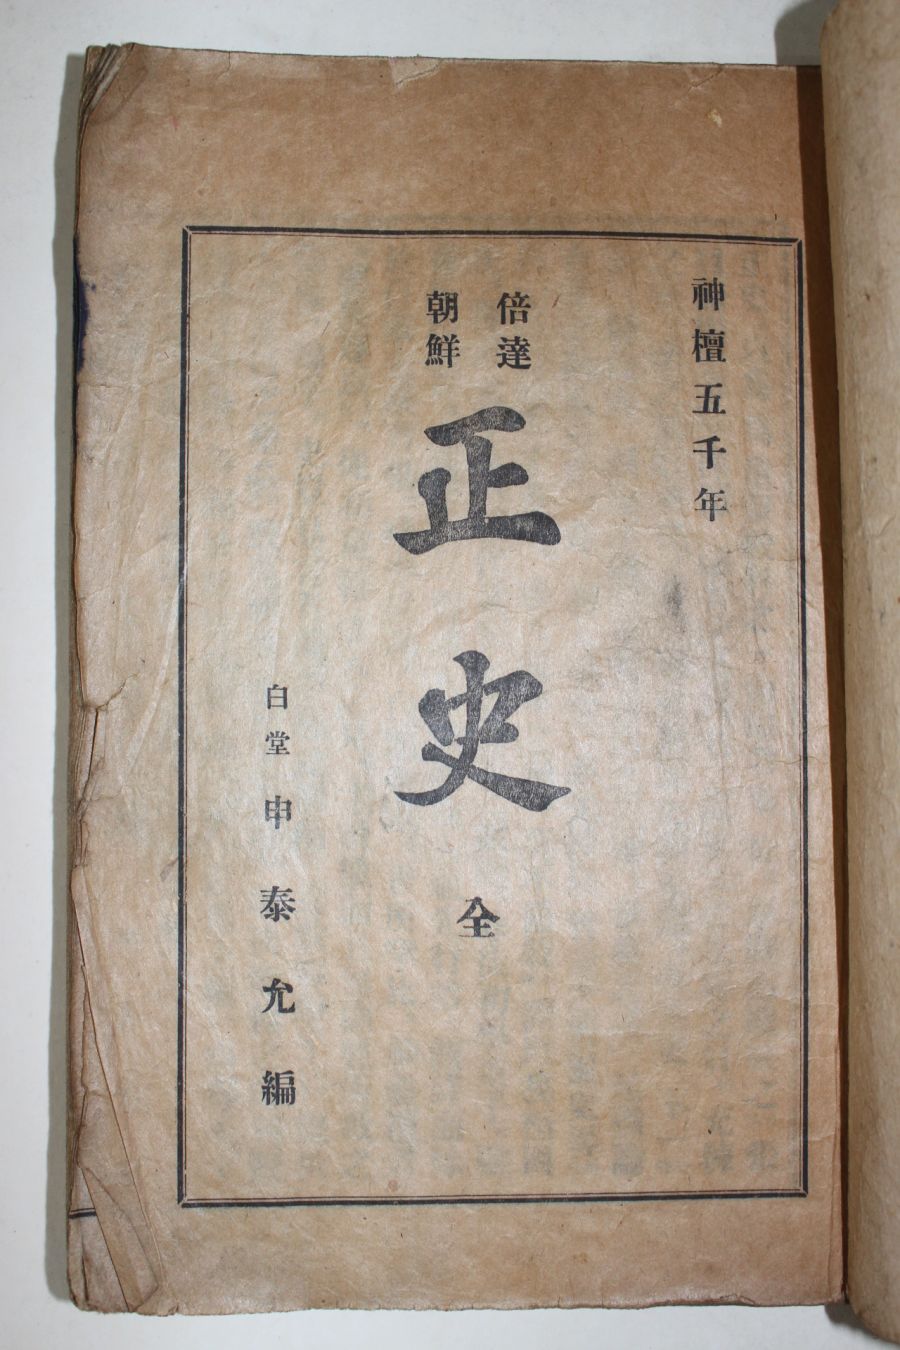 神檀五千年
倍達
朝鮮
正史
全
白堂申泰允編